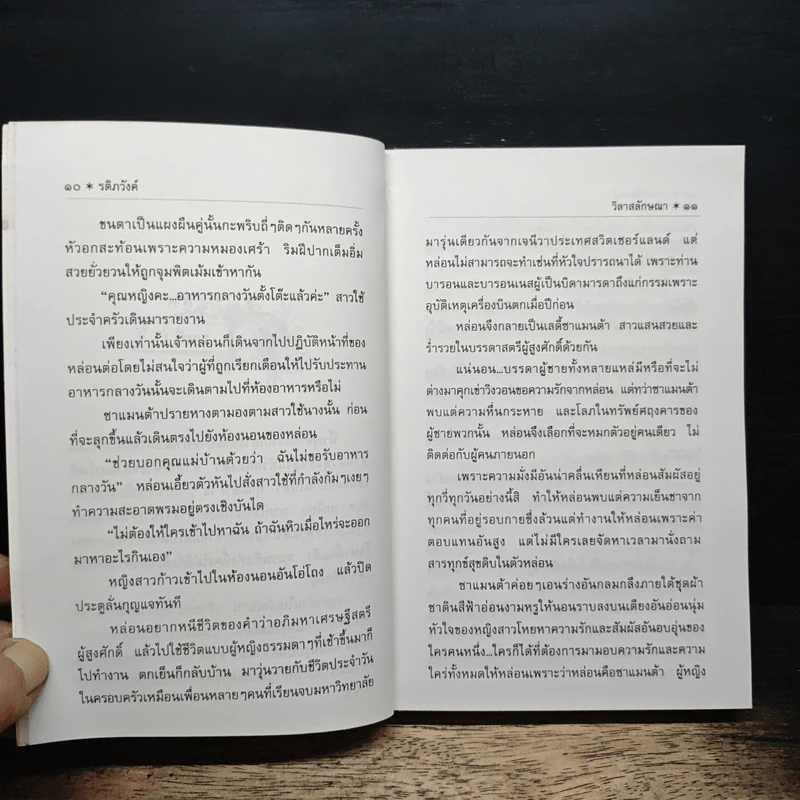 ๑๐ ✶ รติภวังค์
ขนตาเป็นแผงผืนคู่นั้นกะพริบถี่ๆติดๆกันหลายครั้ง
หัวอกสะท้อนเพราะความหมองเศร้า ริมฝีปากเต็มอิ่ม
สวยยั่วยวนให้ถูกจุมพิตเม้มเข้าหากัน
“คุณหญิงคะ...อาหารกลางวันตั้งโต๊ะแล้วค่ะ” สาวใช้
ประจำครัวเดินมารายงาน
เพียงเท่านั้นเจ้าหล่อนก็เดินจากไปปฏิบัติหน้าที่ของ
หล่อนต่อโดยไม่สนใจว่าผู้ที่ถูกเรียกเตือนให้ไปรับประทาน
อาหารกลางวันนั้นจะเดินตามไปที่ห้องอาหารหรือไม่
ซาแมนต้าปรายหางตามองตามสาวใช้นางนั้น ก่อน
ที่จะลุกขึ้นแล้วเดินตรงไปยังห้องนอนของหล่อน
“ช่วยบอกคุณแม่บ้านด้วยว่า ฉันไม่ขอรับอาหาร
กลางวัน” หล่อนเอี้ยวตัวหันไปสั่งสาวใช้ที่กำลังก้มๆเงยๆ
ทำความสะอาดพรมอยู่ตรงเชิงบันได
“ไม่ต้องให้ใครเข้าไปหาฉัน ถ้าฉันหิวเมื่อไหร่จะออก
มาหาอะไรกินเอง”
หญิงสาวก้าวเข้าไปในห้องนอนอันโอ่โถง แล้วปิด
ประตูลั่นกุญแจทันที
หล่อนอยากหนีชีวิตของคำว่าอภิมหาเศรษฐีสตรี
ผู้สูงศักดิ์ แล้วไปใช้ชีวิตแบบผู้หญิงธรรมดาๆที่เช้าขึ้นมาก็
ไปทำงาน ตกเย็นก็กลับบ้าน มาวุ่นวายกับชีวิตประจำวัน
ในครอบครัวเหมือนเพื่อนหลายๆคนที่เรียนจบมหาวิทยาลัย
วิลาสลักษณา ✶ ๑๑
มารุ่นเดียวกันจากเจนีวาประเทศสวิตเซอร์แลนด์ แต่
หล่อนไม่สามารถจะทำเช่นที่หัวใจปรารถนาได้ เพราะท่าน
บารอนและบารอนเนสผู้เป็นบิดามารดาถึงแก่กรรมเพราะ
อุบัติเหตุเครื่องบินตกเมื่อปีก่อน
หล่อนจึงกลายเป็นเลดี้ซาแมนต้า สาวแสนสวยและ
ร่ำรวยในบรรดาสตรีผู้สูงศักดิ์ด้วยกัน
แน่นอน...บรรดาผู้ชายทั้งหลายแหล่มีหรือที่จะไม่
ต่างมาคุกเข่าวิงวอนขอความรักจากหล่อน แต่ทว่าซาแมนต้า
พบแต่ความหื่นกระหาย และโลภในทรัพย์ศฤงคารของ
ผู้ชายพวกนั้น หล่อนจึงเลือกที่จะหมกตัวอยู่คนเดียว ไม่
ติดต่อกับผู้คนภายนอก
เพราะความมั่งมีอันน่าคลื่นเหียนที่หล่อนสัมผัสอยู่
ทุกวี่ทุกวันอย่างนี้สิ ทำให้หล่อนพบแต่ความเย็นชาจาก
ทุกคนที่อยู่รอบกายซึ่งล้วนแต่ทำงานให้หล่อนเพราะค่า
ตอบแทนอันสูง แต่ไม่มีใครเลยจัดหาเวลามานั่งถาม
สารทุกข์สุขดิบในตัวหล่อน
ซาแมนต้าค่อยๆเอนร่างอันกลมกลึงภายใต้ชุดผ้า
ซาตินสีฟ้าอ่อนงามหรูให้นอนราบลงบนเตียงอันอ่อนนุ่ม
หัวใจของหญิงสาวโหยหาความรักและสัมผัสอันอบอุ่นของ
ใครคนหนึ่ง...ใครก็ได้ที่ต้องการมามอบความรักและความ
ใคร่ทั้งหมดให้หล่อนเพราะว่าหล่อนคือซาแมนต้า ผู้หญิง